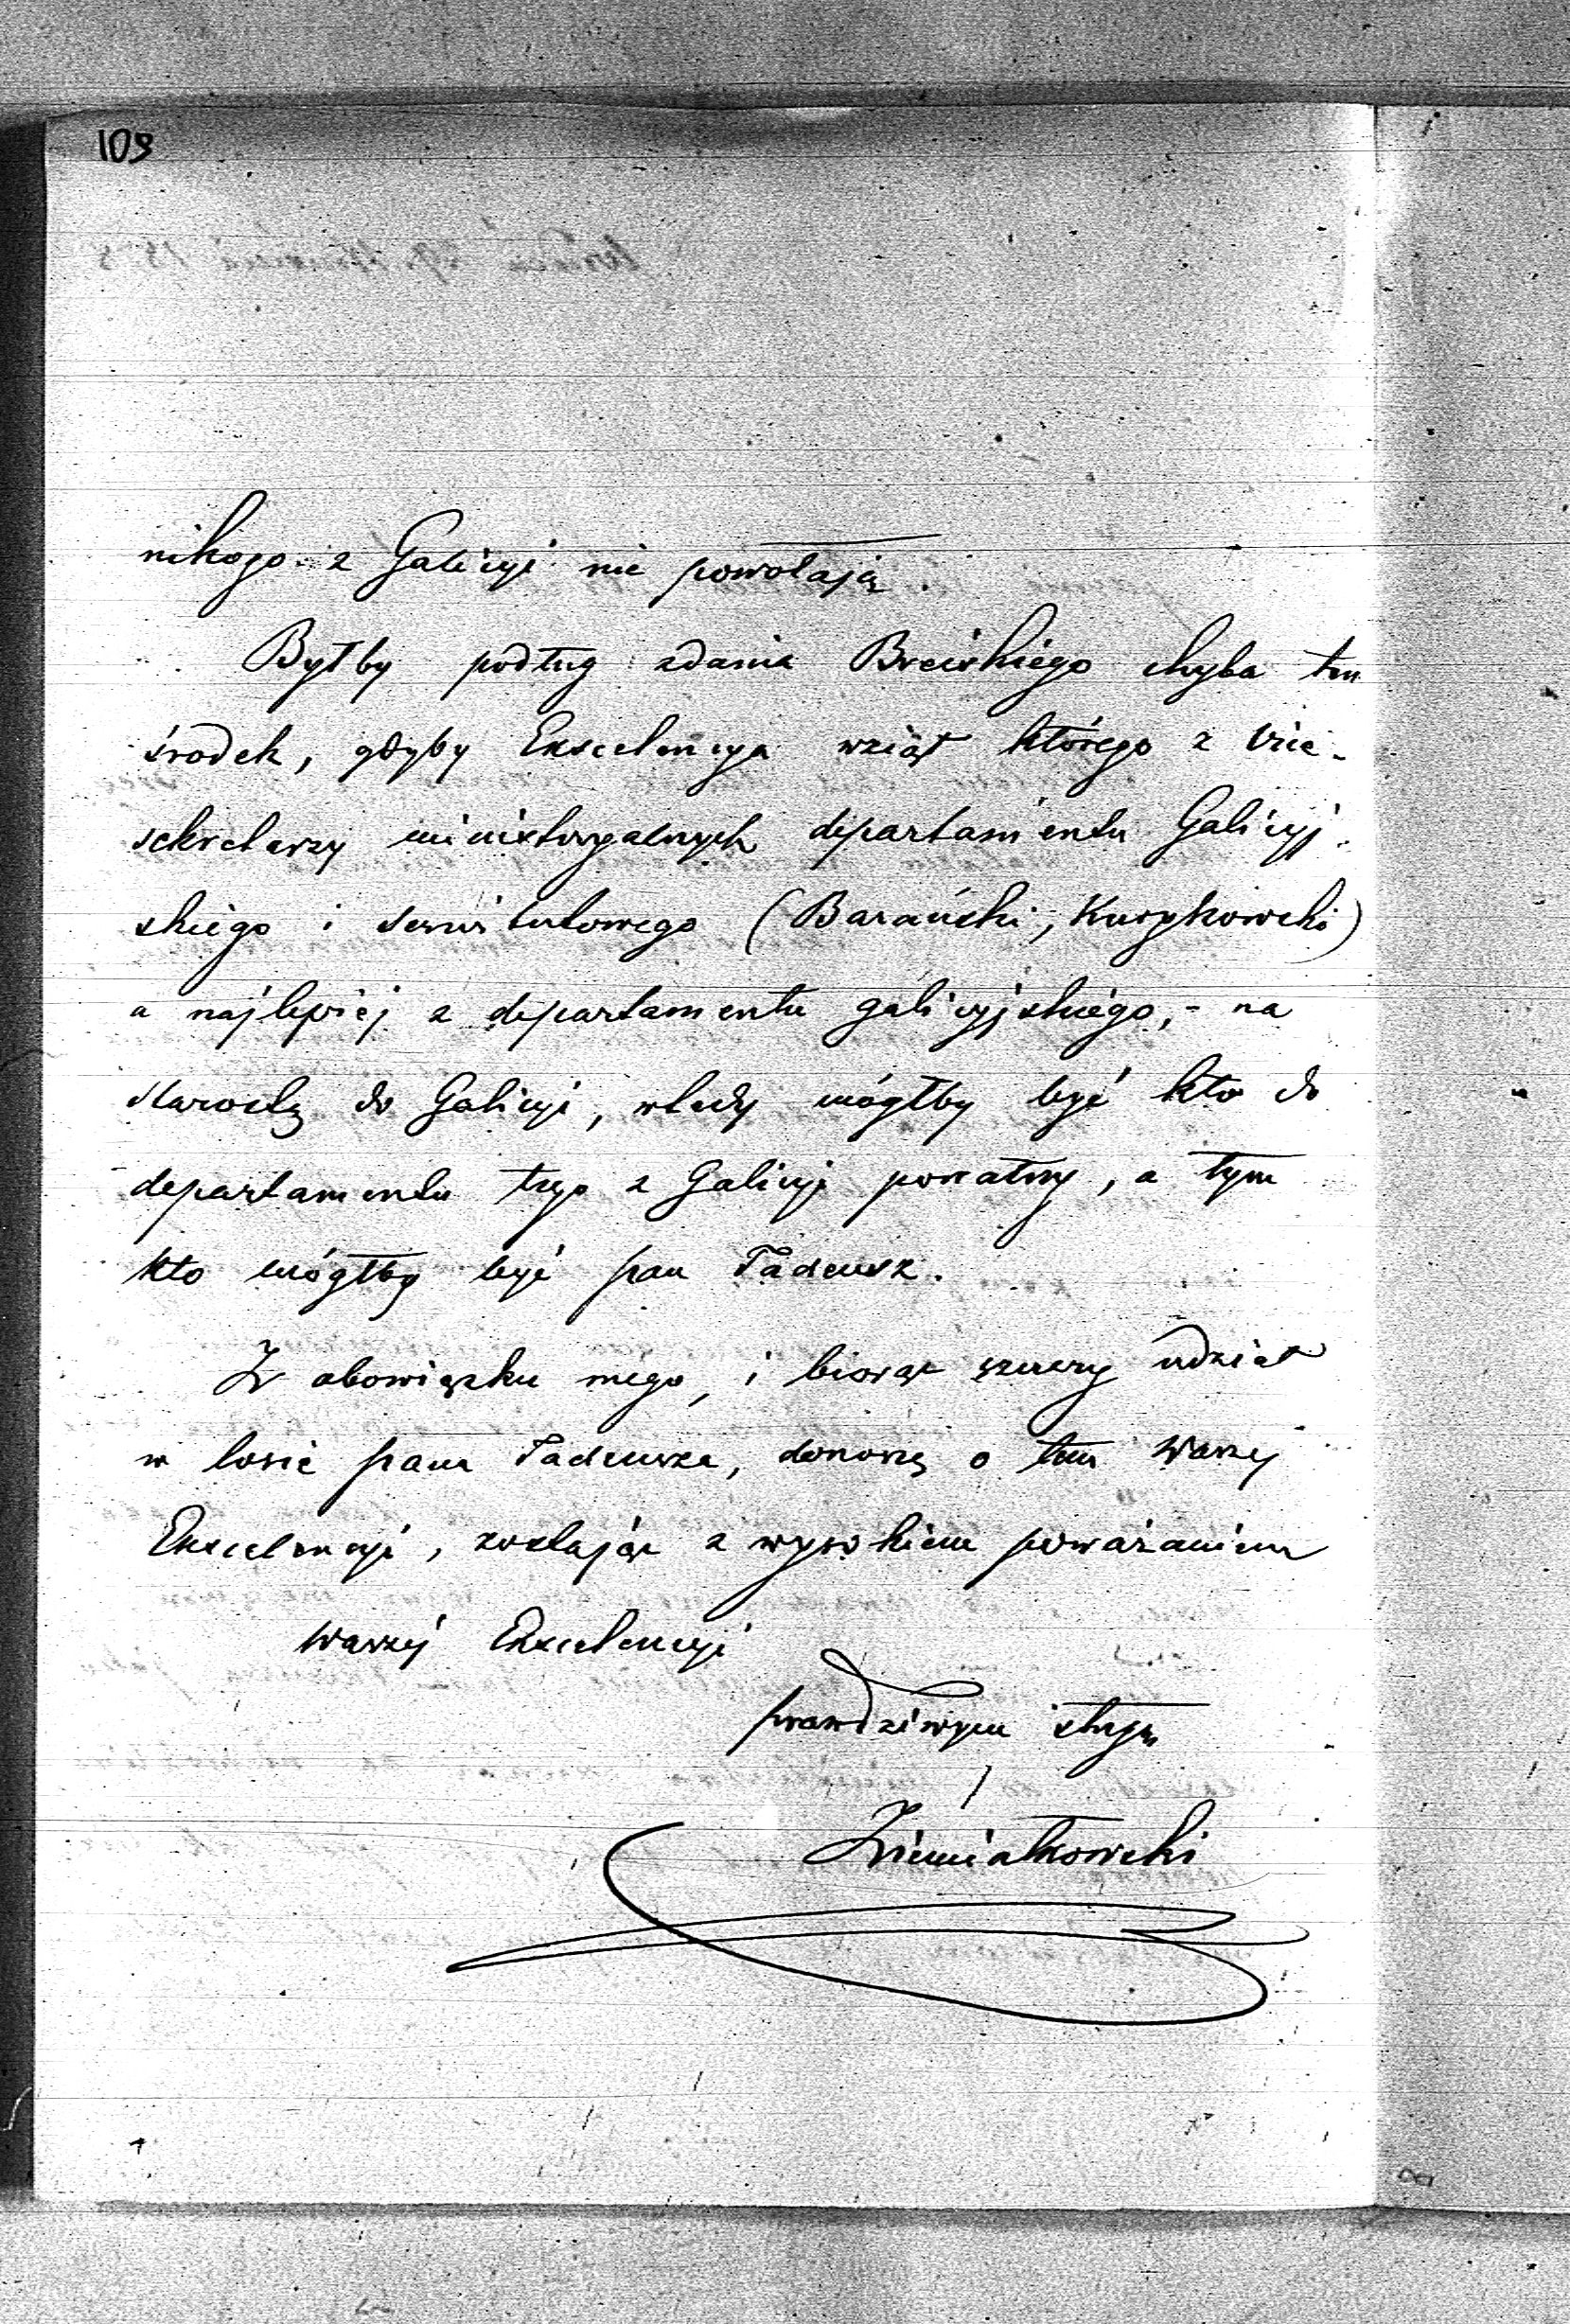 109
nikogo z Galicyi nie powołają.
Byłby podług zdania Breiskiego chyba ten
środek, gdyby Ekscelencya wziął którego z Vice-
sekretarzy ministeryalnych departamentu Galicyj-
skiego i serwitutowego (Barański, Kurykowski)
a najlepiej z departamentu galicyjskiego, - na
starostę do Galicyi, wtedy mógłby być kto do
departamentu tego z Galicyi powołany, a tym
kto mógłby być pan Tadeusz.
Z obowiązku mego, i biorąc szczery udział
w losie pana Tadeusza, donoszę o tem Waszej
Ekscelencyi, zostając z wysokiem poważaniem
Waszej Ekscelencyi
prawdziwym sługą
Ziemiałkowski